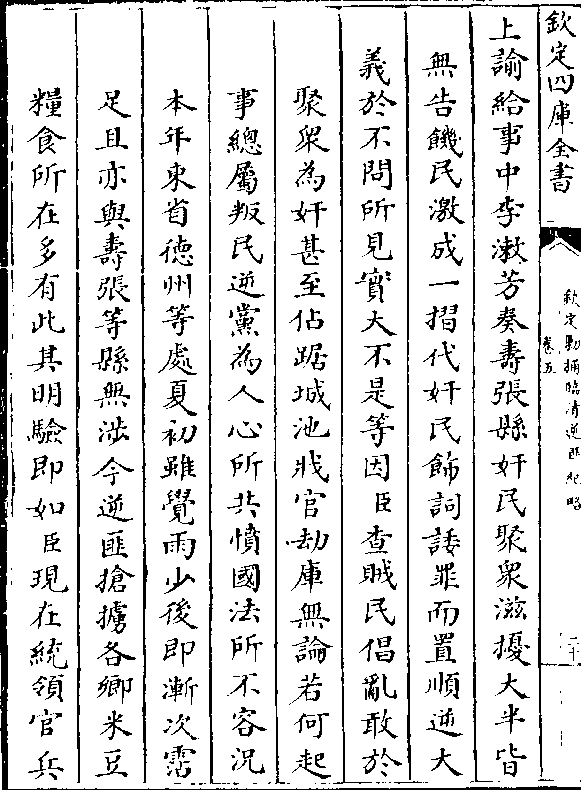 欽定四庫全書
欽定剿捕臨清逆匪紀略
卷五
二十
上諭給事中李漱芳奏壽張縣奸民聚衆滋擾大半皆
無告饑民激成一摺代奸民飾詞諉罪而置順逆大
義於不問所見實大不是等因臣查賊民倡亂敢於
聚衆為奸甚至佔踞城池戕官劫庫無論若何起
事總屬叛民逆黨為人心所共憤國法所不容況
本年東省德州等處夏初雖覺雨少後即漸次霑
足且亦與壽張等縣無涉今逆匪搶擄各鄉米豆
糧食所在多有此其明驗即如臣現在統領官兵